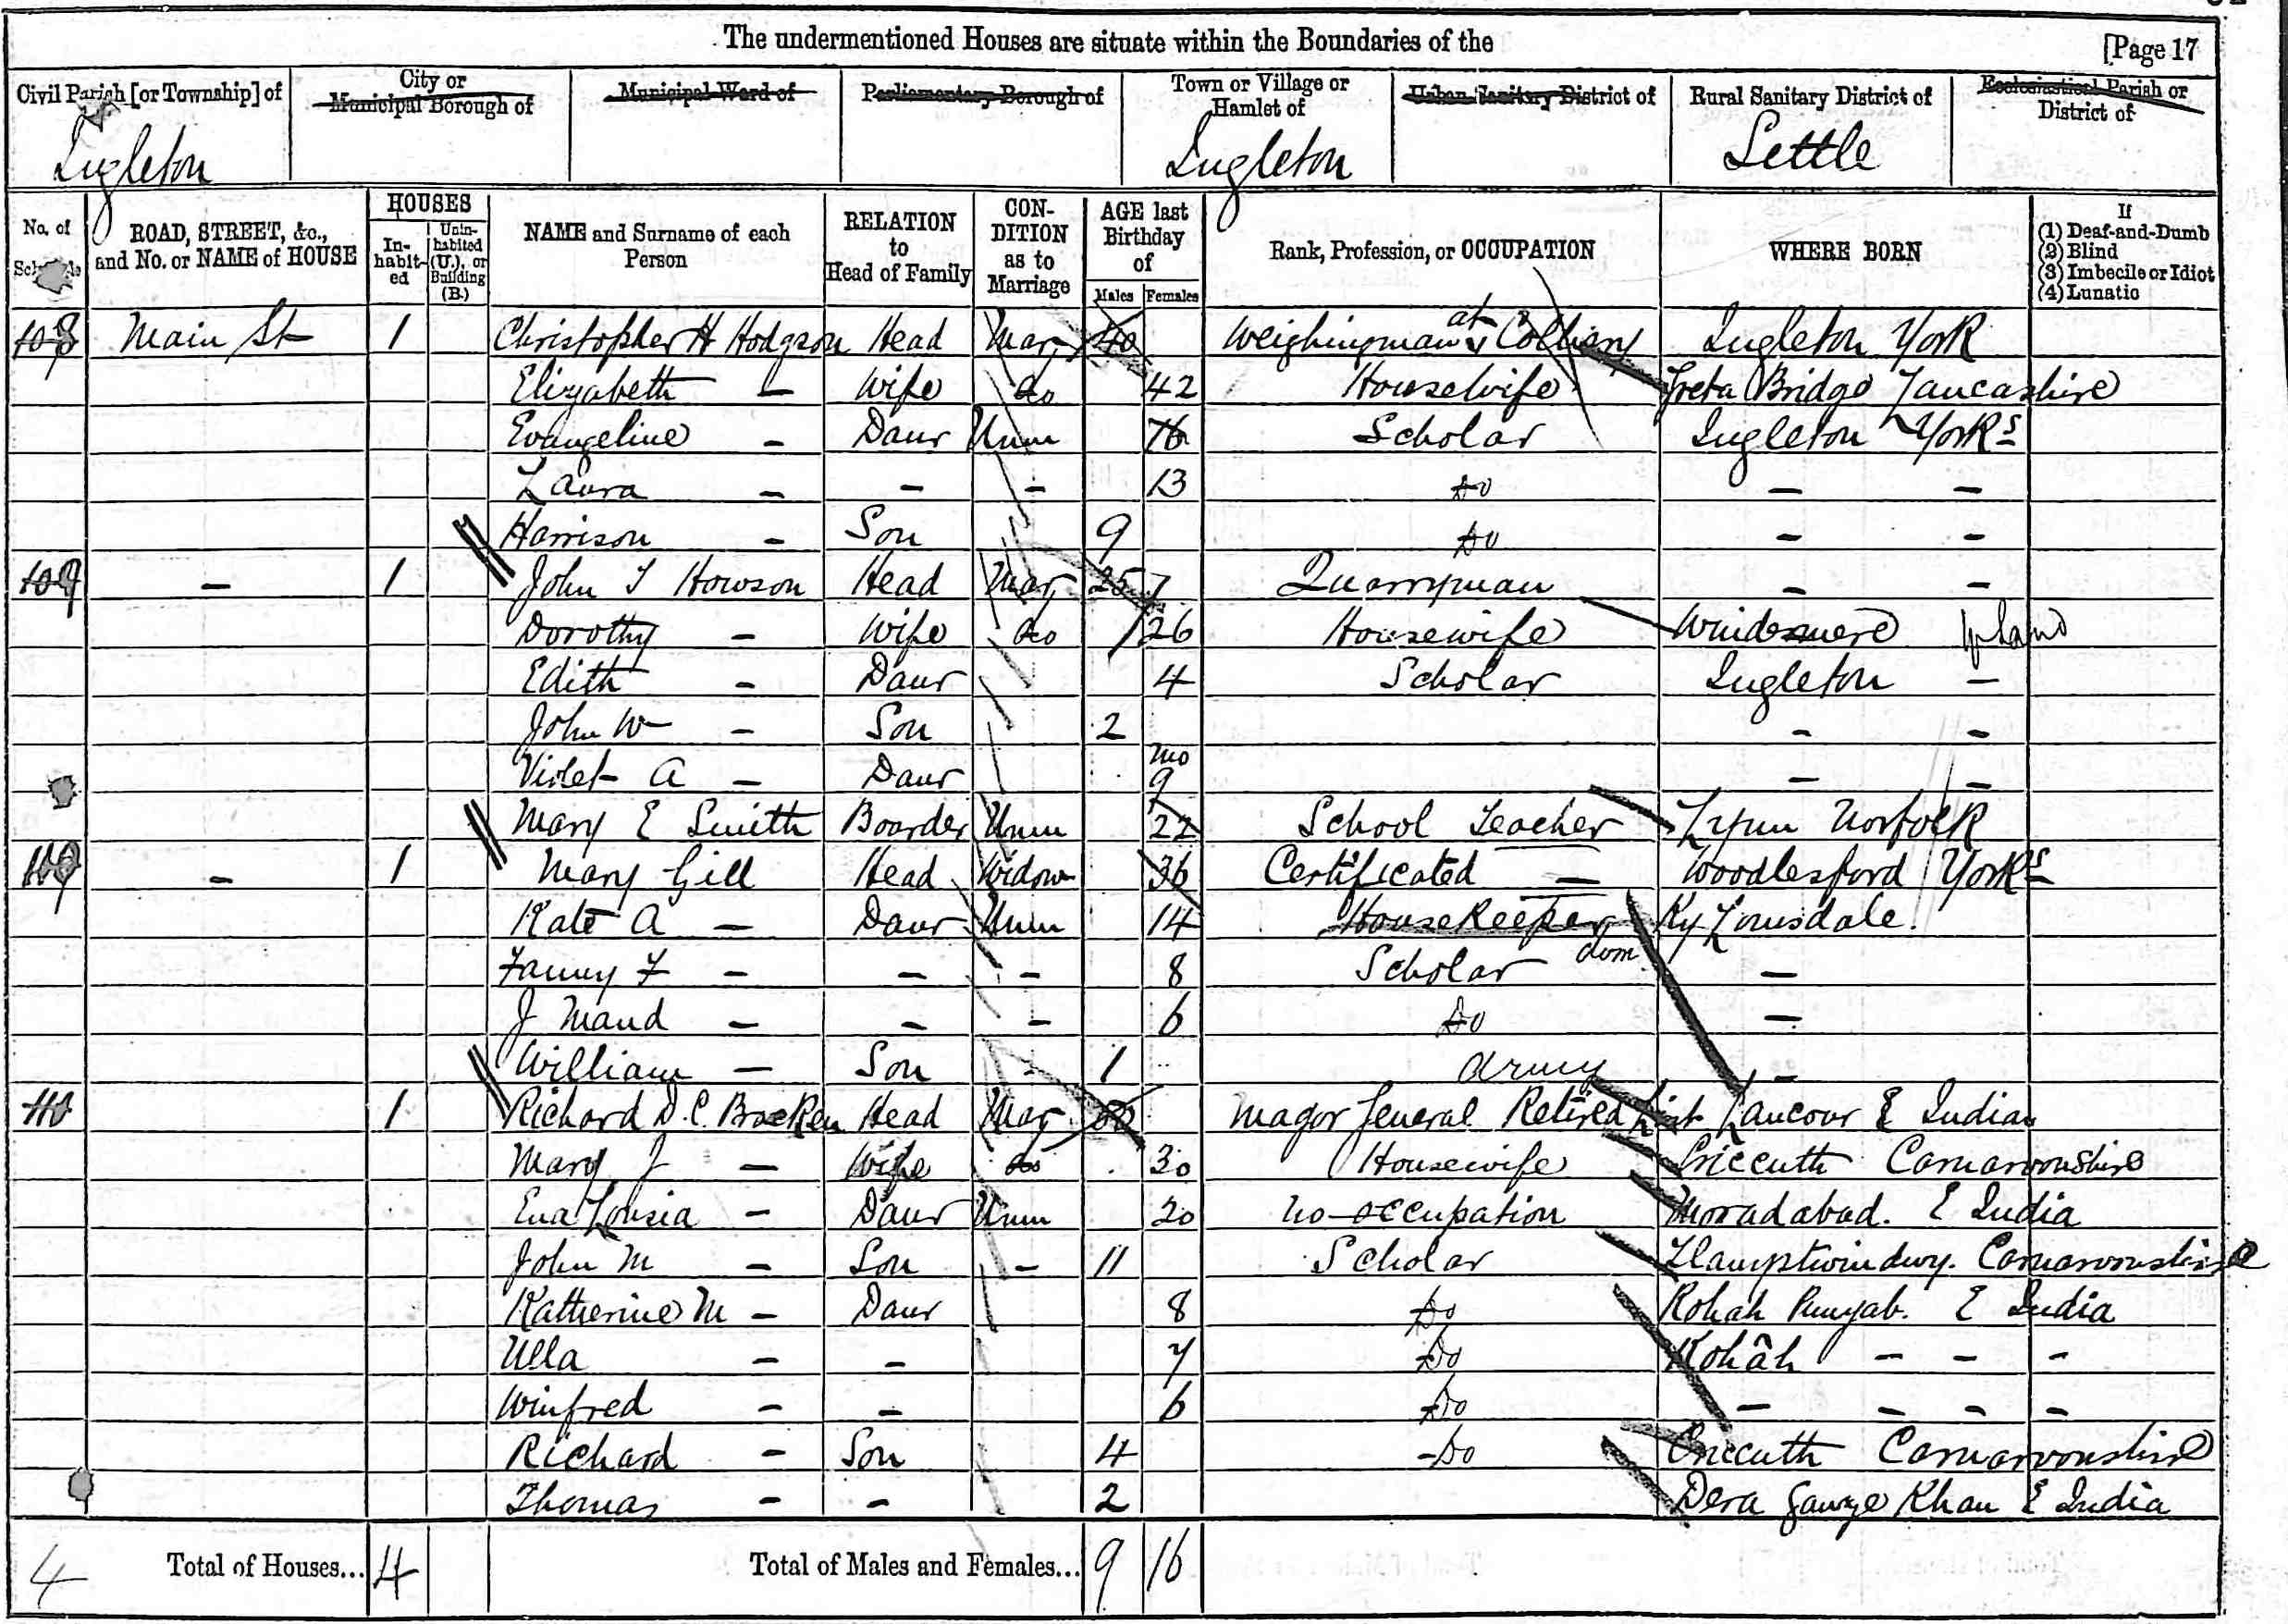 The undermentioned Houses are situate within the Boundaries of the [Page 17
Civil Parish [or Township] of
City or Municipal Borough of
Municipal Ward of
Parliamentary Borough of
Town or Village or Hamlet of
Urban Sanitary District of
Rural Sanitary District of
Ecclesiastical Parish or District of
Ingleton Ingleton Settle
No. of Schedule
ROAD, STREET, &c., and No. or NAME of HOUSE
HOUSES
Inhabited
Uninhabited (U.), or Building (B.)
NAME and Surname of each Person
RELATION to Head of Family
CONDITION as to Marriage
AGE last Birthday of
Males Females
Rank, Profession, or OCCUPATION
WHERE BORN
If
(1) Deaf-and-Dumb
(2) Blind
(3) Imbecile or Idiot
(4) Lunatic
108 Main St 1 Christopher H Hodgson Head Mar 40 Weighingman at Colliery Ingleton York
Elizabeth — Wife do 42 Housewife Greta Bridge Lancashire
Evangeline — Daur Unm 16 Scholar Ingleton Yorks
Laura — — — 13 Do — —
Harrison — Son 9 Do — —
109 — 1 John T Howson Head Mar 25 Quarryman — —
Dorothy — Wife do 26 Housewife Windermere
Edith — Daur 4 Scholar Ingleton —
John W — Son 2 — —
Violet A — Daur 9 mo — —
Mary E Smith Boarder Unm 22 School Teacher Lynn Norfolk
— 1 Mary Gill Head Widow 36 Certificated — Woodlesford Yorks
Kate A — Daur Unm 14 Housekeeper dom Ky Lonsdale.
Fanny F — — — 8 Scholar —
J Maud — — — 6 Do —
William — Son 1 —
110 1 Richard D.C. Bracken Head Mar Magor General Army Retired List E Indian
Mary J — Wife do 30 Housewife Criccuth Carnarvonshire
Eua Louisia — Daur Unm 20 no occupation Moradabad. E India
John M — Son — 11 Scholar Llamptwindwy. Carnarvonshire
Katherine M — Daur 8 Do Kohah Punyab. E India
Ulla — — 7 Do Kohâh — — —
Winfred — — 6 Do — — — —
Richard — Son 4 Do Criccuth Carnarvonshire
Thomas — — 2 Dera Khan E India
4 Total of Houses... 4 Total of Males and Females... 9 16